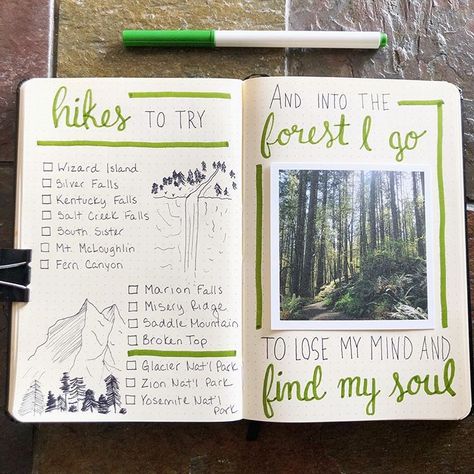 hikes TO TRY
Wizard Island
Silver Falls
Kentucky Falls
Salt Creek Falls
South Sister
Mt. McLoughlin
Fern Canyon
Marion Falls
Misery Ridge
Saddle Mountain
Broken Top
Glacier Nat'l Park
Zion Nat'l Park
Yosemite Nat'l
Park
AND INTO THE
forest I go
TO LOSE MY MIND AND
find my soul